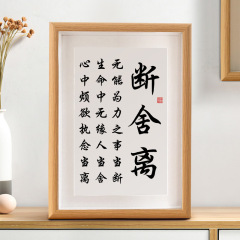 断舍离
无能为力之事当断
生命中无缘人当舍
心中烦欲执念当离